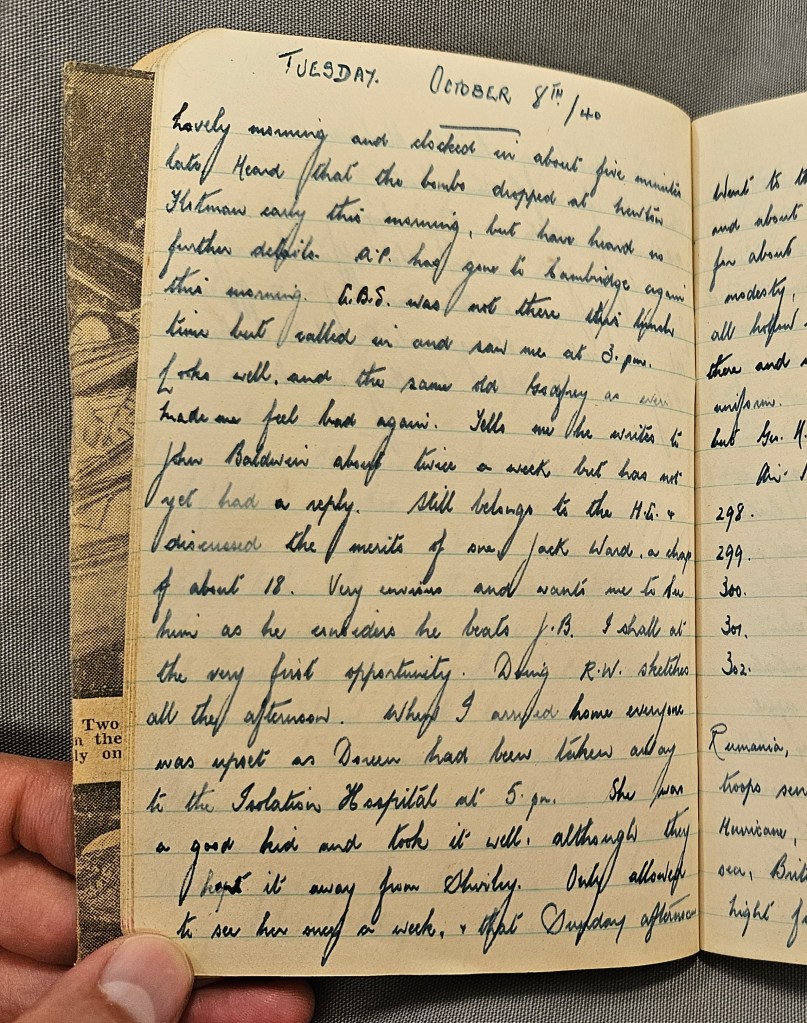 TUESDAY. OCTOBER 8TH/40
Lovely morning and clocked in about five minutes
late. Heard that the bombs dropped at Newton
Flotman early this morning, but have heard no
further details. A.P. had gone to Cambridge again
this morning. G.B.S. was not there this lunch
time but called in and saw me at 3.pm.
Looks well, and the same old Godfrey as ever
made me feel bad again. Tells me he writes to
John Baldwin about twice a week but has not
yet had a reply. Still belongs to the H.G. &
discussed the merits of one Jack Ward, a chap
of about 18. Very envious and wants me to see
him as he considers he beats J.B. I shall at
the very first opportunity. Doing R.W. sketches
all the afternoon. When I arrived home everyone
was upset as Doreen had been taken away
to the Isolation Hospital at 5.pm. She was
a good kid and took it well, although they
kept it away from Shirley. Only allowed
to see her once a week, & that Sunday afternoon
Two
n the
ly on
Went to th
and about
for about
modesty,
all
there and s
uniform.
but Gu. H.
Air
298.
299.
300.
301.
302.
Rumania,
troops sen
Hurricane,
sea, Brit
night f